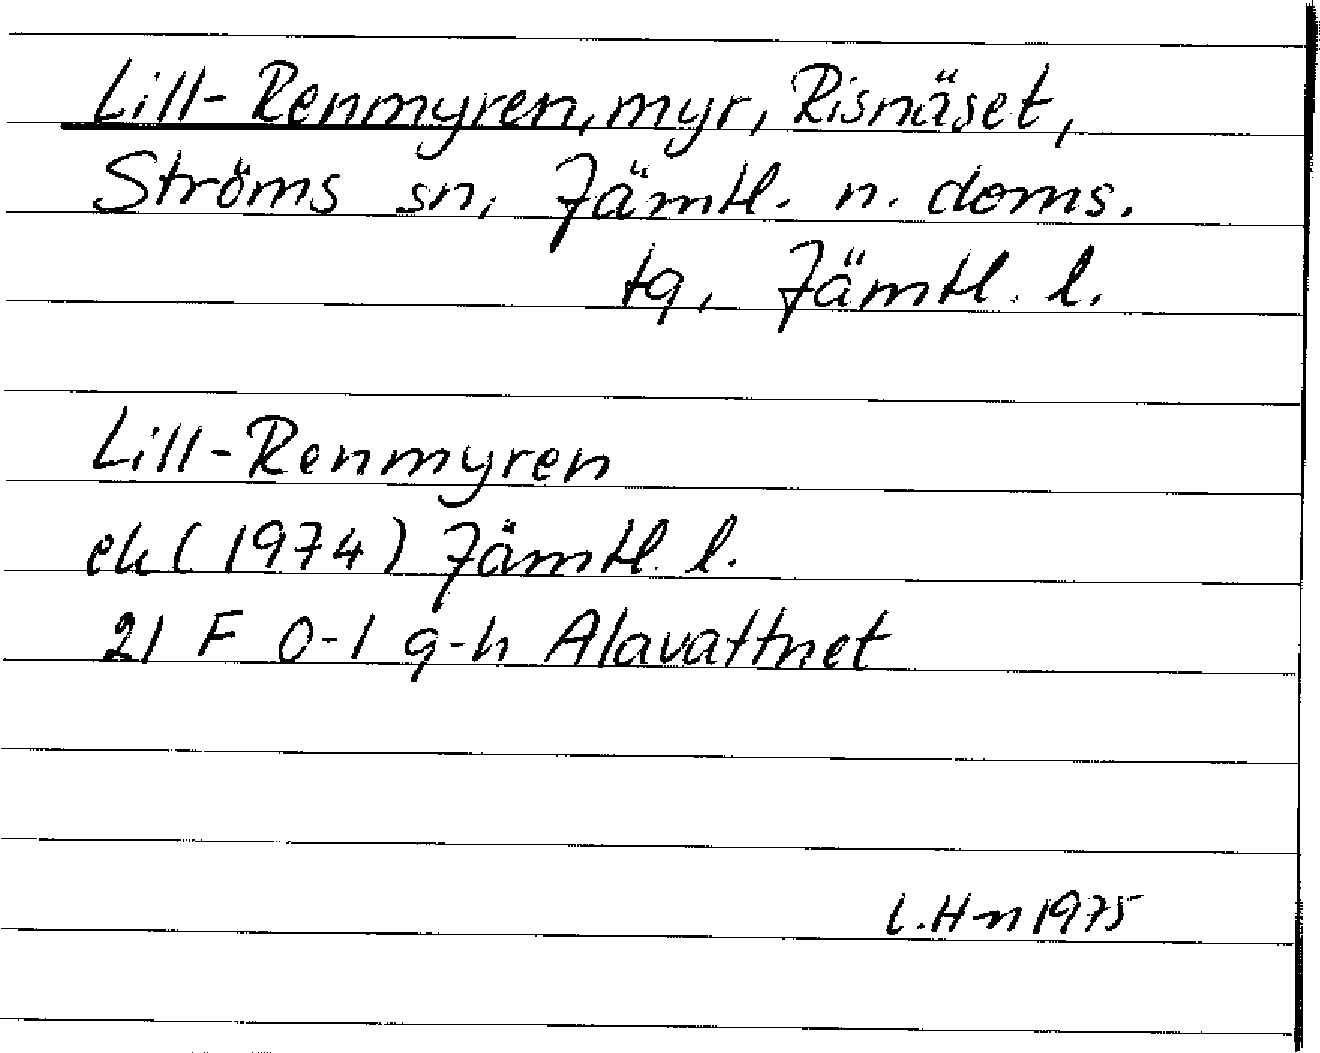 Lill-Renmyren, myr, Risnäset,
Ströms sn, Jämtl. n. doms.
tg, Jämtl. l.
Lill-Renmyren
ek (1974) Jämtl. l.
21 F 0-1 g-h Alavattnet
L.H-n 1975